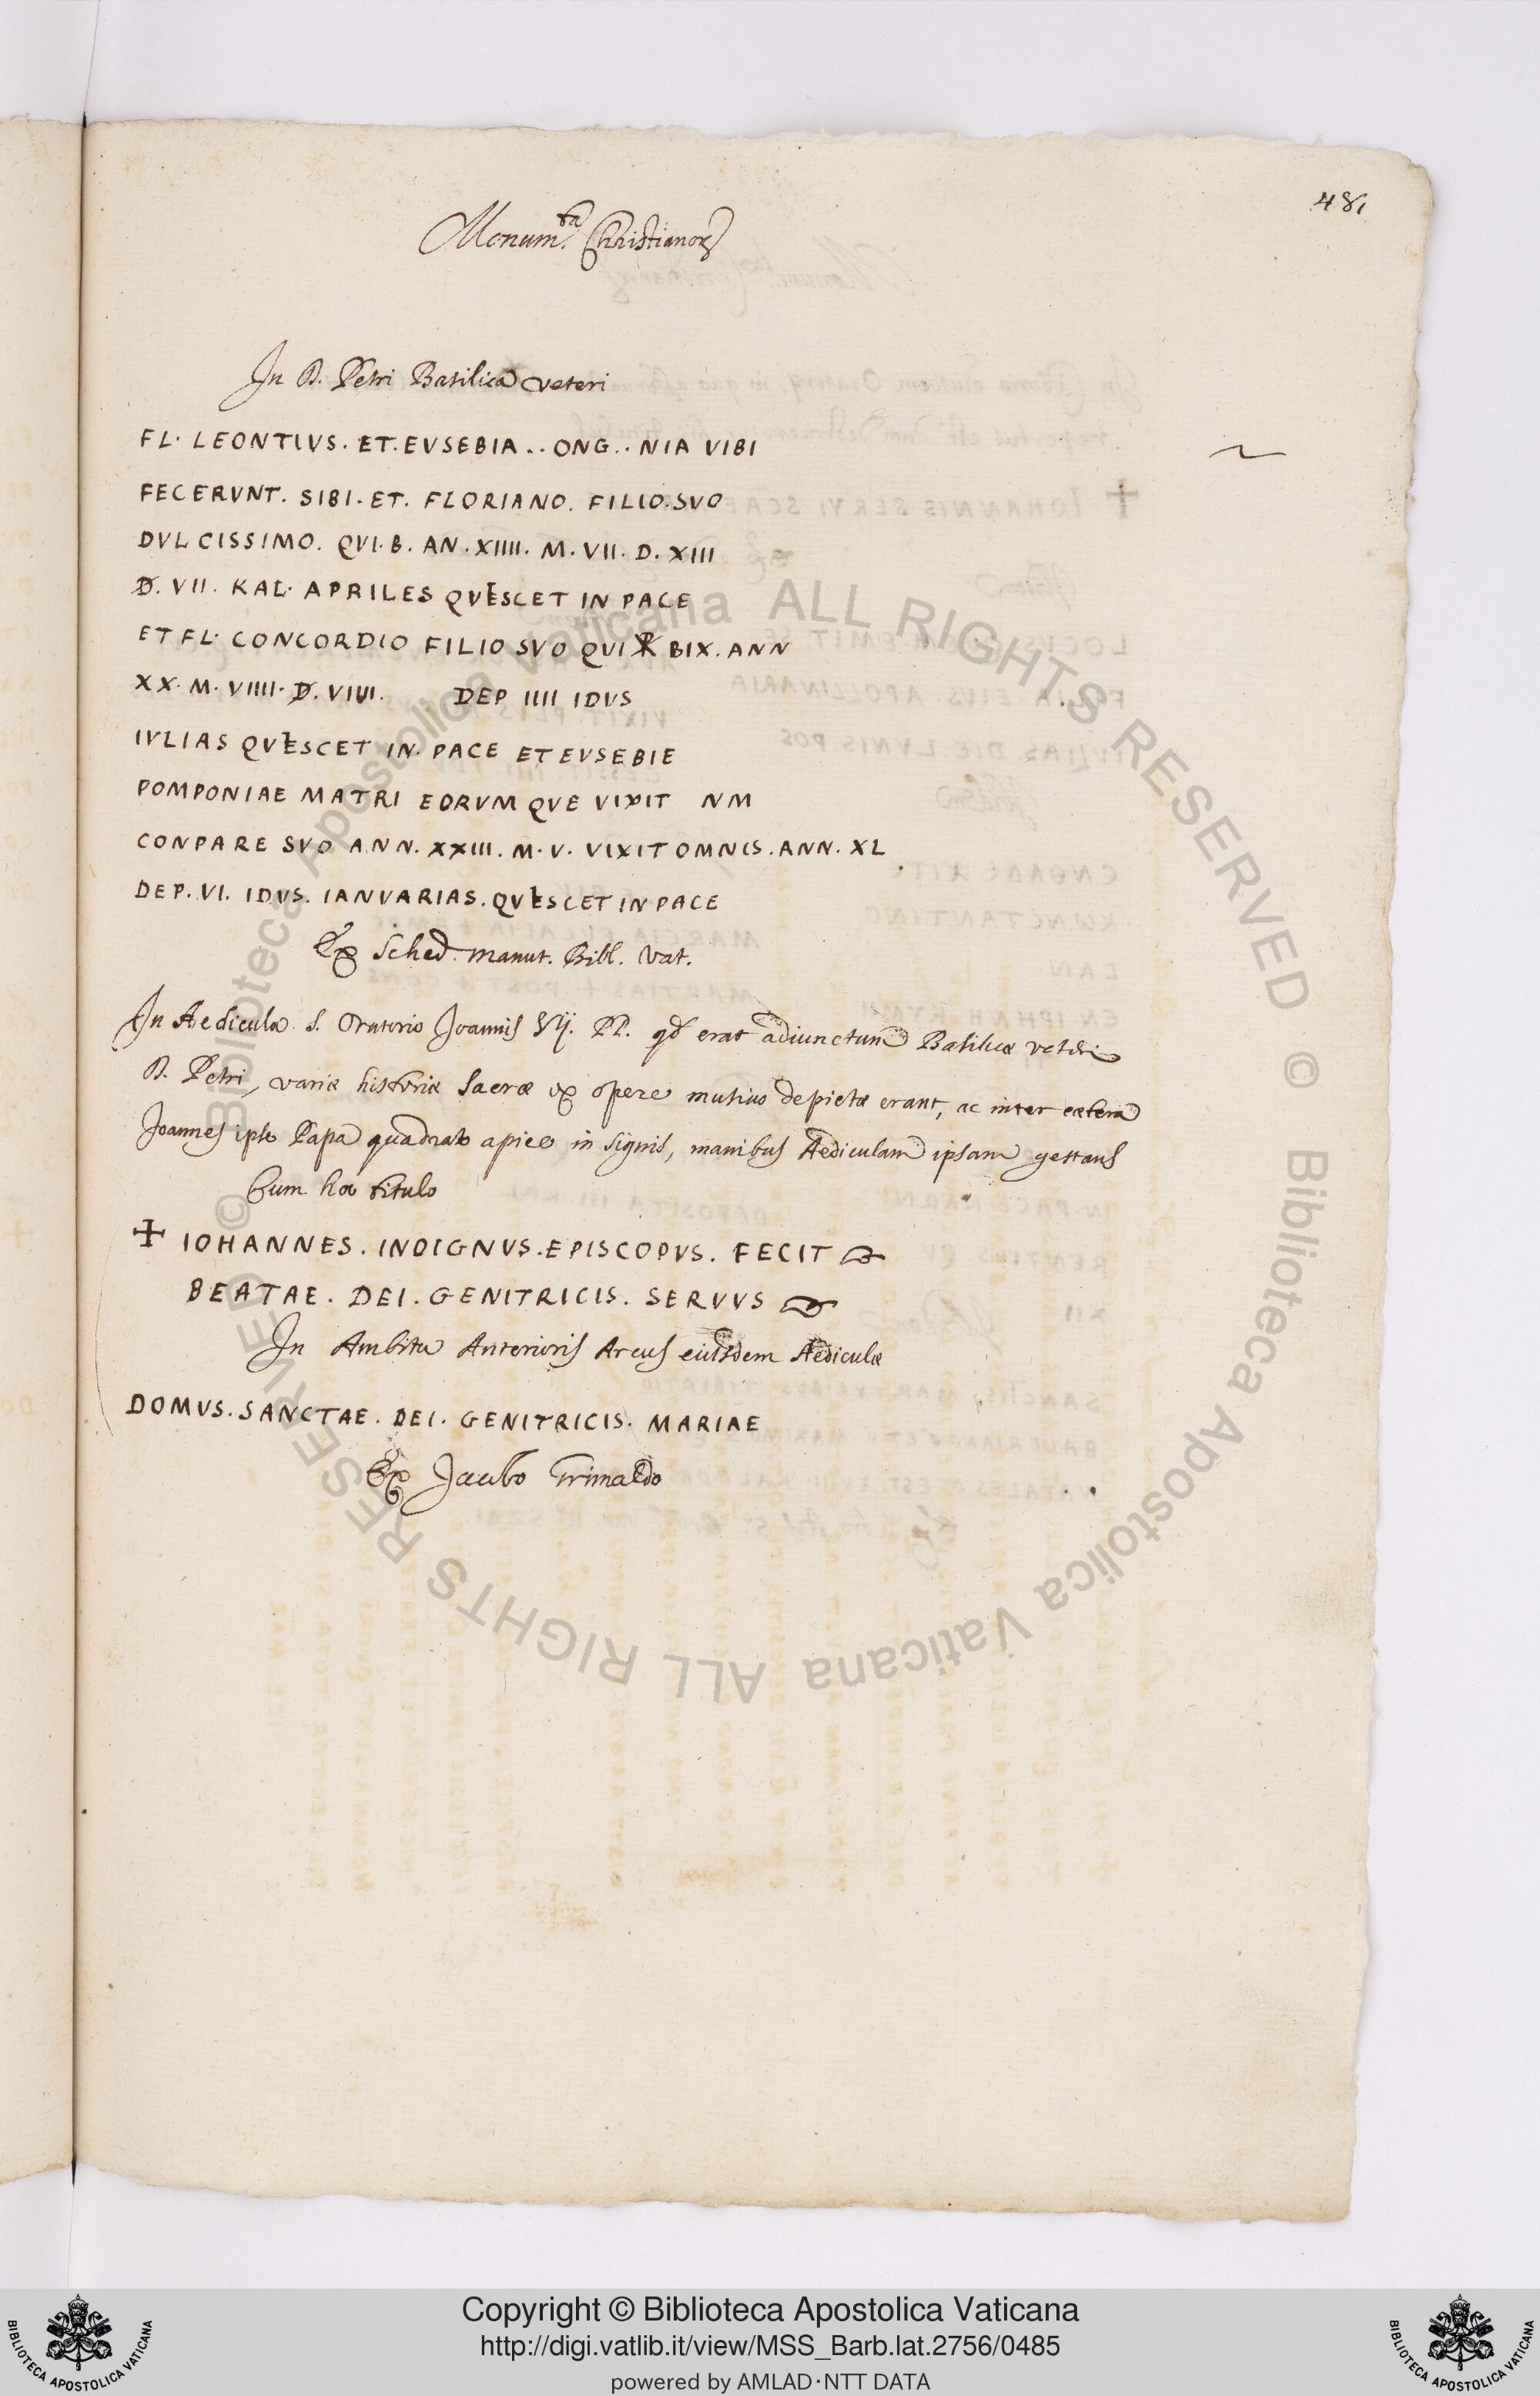 481
Monum.ta Christianor
In D. Petri Basilica veteri
FL. LEONTIVS. ET. EVSEBIA .. ONG .. NIA VIBI
FECERVNT. SIBI. ET. FLORIANO. FILIO. SVO
DVLCISSIMO. QVI. B. AN. XIIII. M. VII. D. XIII
D. VII. KAL. APRILES QVESCET IN PACE
ET FL. CONCORDIO FILIO SVO QVI ☧ BIX. ANN
XX. M. VIIII. D. VIIII. DEP IIII IDVS
IVLIAS QVESCET IN PACE ET EVSEBIE
POMPONIAE MATRI EORVM QVE VIXIT NM
CONPARE SVO ANN. XXIII. M. V. VIXIT OMNIS. ANN. XL
DEP. VI. IDVS. IANVARIAS. QVESCET IN PACE
Ex Sched. manut. Bibl. Vat.
In Aedicula s. Oratorio Joannis Vij. PP. qd erat adiunctum Basilicæ veteri
D. Petri, variæ historiæ sacræ ex opere musiuo depictæ erant, ac inter cætera
Joannes ipse Papa quadrato apice in signis, manibus Aediculam ipsam gestans
Cum hoc titulo
✝ IOHANNES. INDIGNVS. EPISCOPVS. FECIT
BEATAE. DEI. GENITRICIS. SERVVS
In Ambitu Anterioris Arcus eiusdem Aediculæ
DOMVS. SANCTAE. DEI. GENITRICIS. MARIAE
Ex Jacobo Grimaldo
© Biblioteca Apostolica Vaticana ALL RIGHTS RESERVED © Biblioteca Apostolica Vaticana ALL RIGHTS RESERVED
Copyright © Biblioteca Apostolica Vaticana
http://digi.vatlib.it/view/MSS_Barb.lat.2756/0485
powered by AMLAD·NTT DATA
BIBLIOTECA APOSTOLICA VATICANA
BIBLIOTECA APOSTOLICA VATICANA